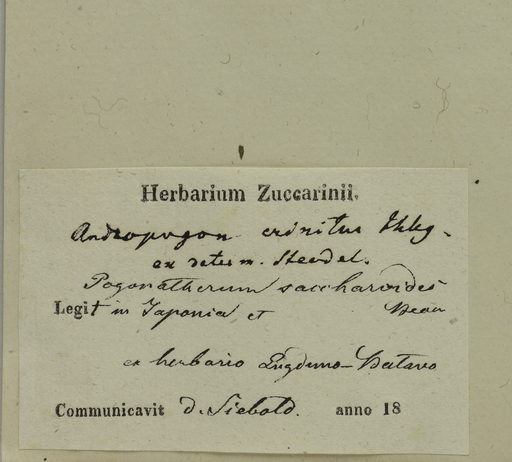 Herbarium Zuccarinii.
Andropogon crinitus Thbg.
ex determ. Steudel.
Pogonatherum saccharoides
Legit in Japonia et Beau
ex herbario Lugduno-Batavo
Communicavit d. Siebold. anno 18